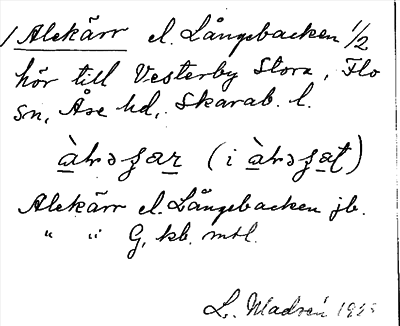 1 Alekärr el. Långebacken 1/2
hör till Vesterby Stora, Flo
sn, Åse hd, Skarab. l.
(i
Alekärr el. Långebacken jb.
" " G, kb. mtl.
L. Madsén